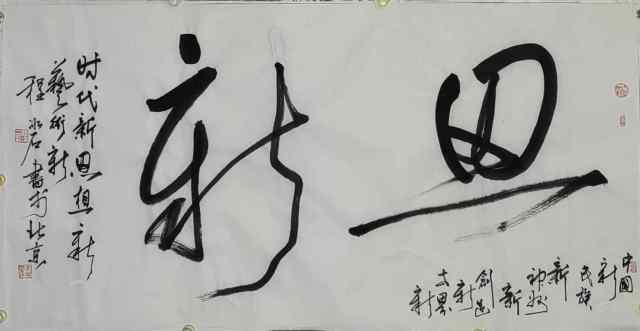 思新
中国
新
民族
新
神州
新
创造
新
世界
新
时代新思想新
藝術新
程 书于北京